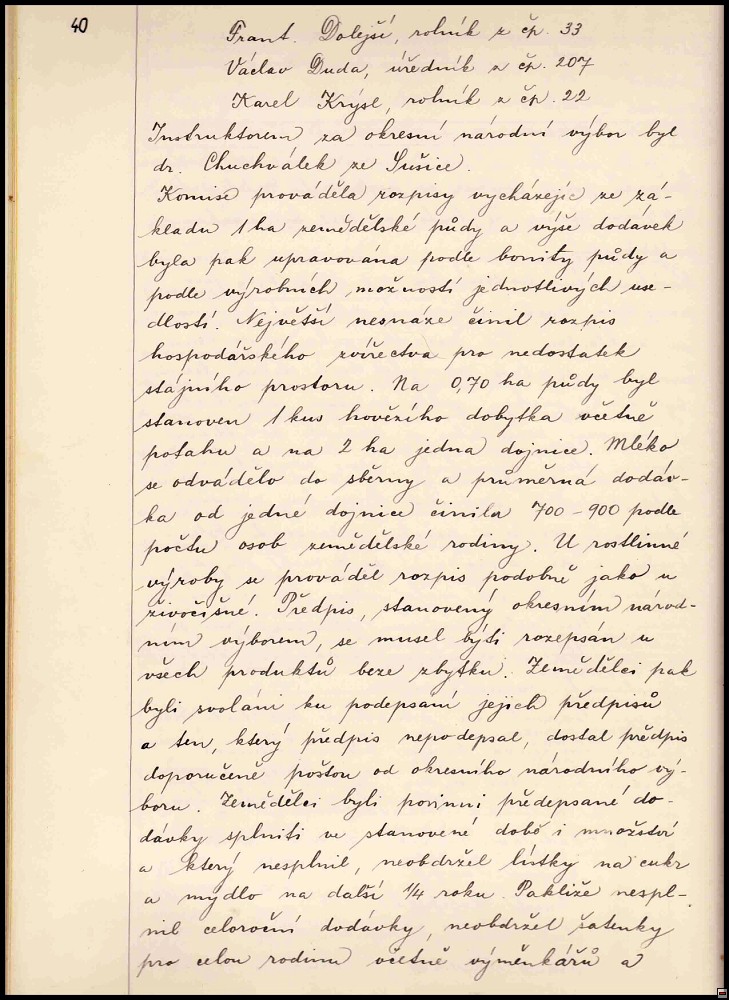 40
Frant. Dolejší, rolník z čp. 33
Václav Duda, úředník z čp. 207
Karel Krýsl, rolník z čp. 22
Instruktorem za okresní národní výbor byl
dr. Chuchválek ze Sušice.
Komise prováděla rozpisy vycházejíc ze zá-
kladu 1 ha zemědělské půdy a výše dodávek
byla pak upravována podle bonity půdy a
podle výrobních možností jednotlivých use-
dlostí. Největší nesnáze činil rozpis
hospodářského zvířectva pro nedostatek
stájního prostoru. Na 0,70 ha půdy byl
stanoven 1 kus hovězího dobytka včetně
potahu a na 2 ha jedna dojnice. Mléko
se odvádělo do sběrny a průměrná dodáv-
ka od jedné dojnice činila 700 - 900 podle
počtu osob zemědělské rodiny. U rostlinné
výroby se prováděl rozpis podobně jako u
živočišné. Předpis, stanovený okresním národ-
ním výborem, se musel býti rozepsán u
všech produktů beze zbytku. Zemědělci pak
byli svoláni ku podepsaní jejich předpisů
a ten, který předpis nepodepsal, dostal předpis
doporučeně poštou od okresního národního vý-
boru. Zemědělci byli povinni předepsané do-
dávky splniti ve stanovené době i množství
a který nesplnil, neobdržel lístky na cukr
a mýdlo na další 1/4 roku. Pakliže nespl-
nil celoroční dodávky, neobdržel šatenky
pro celou rodinu včetně výměnkářů a